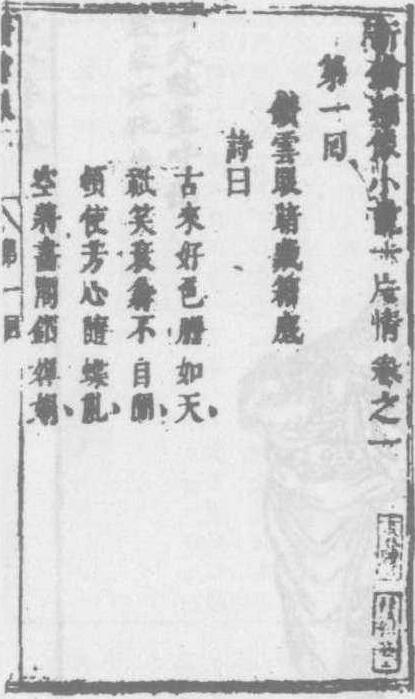 新鐫繡像小說一片情卷之一
第一回
鑽雲眼暗藏箱底
詩曰
古來好色膽如天
祇笑衰翁不自
頓使芳心隨蝶亂
空將畫閣鎖嬋娟
第一回